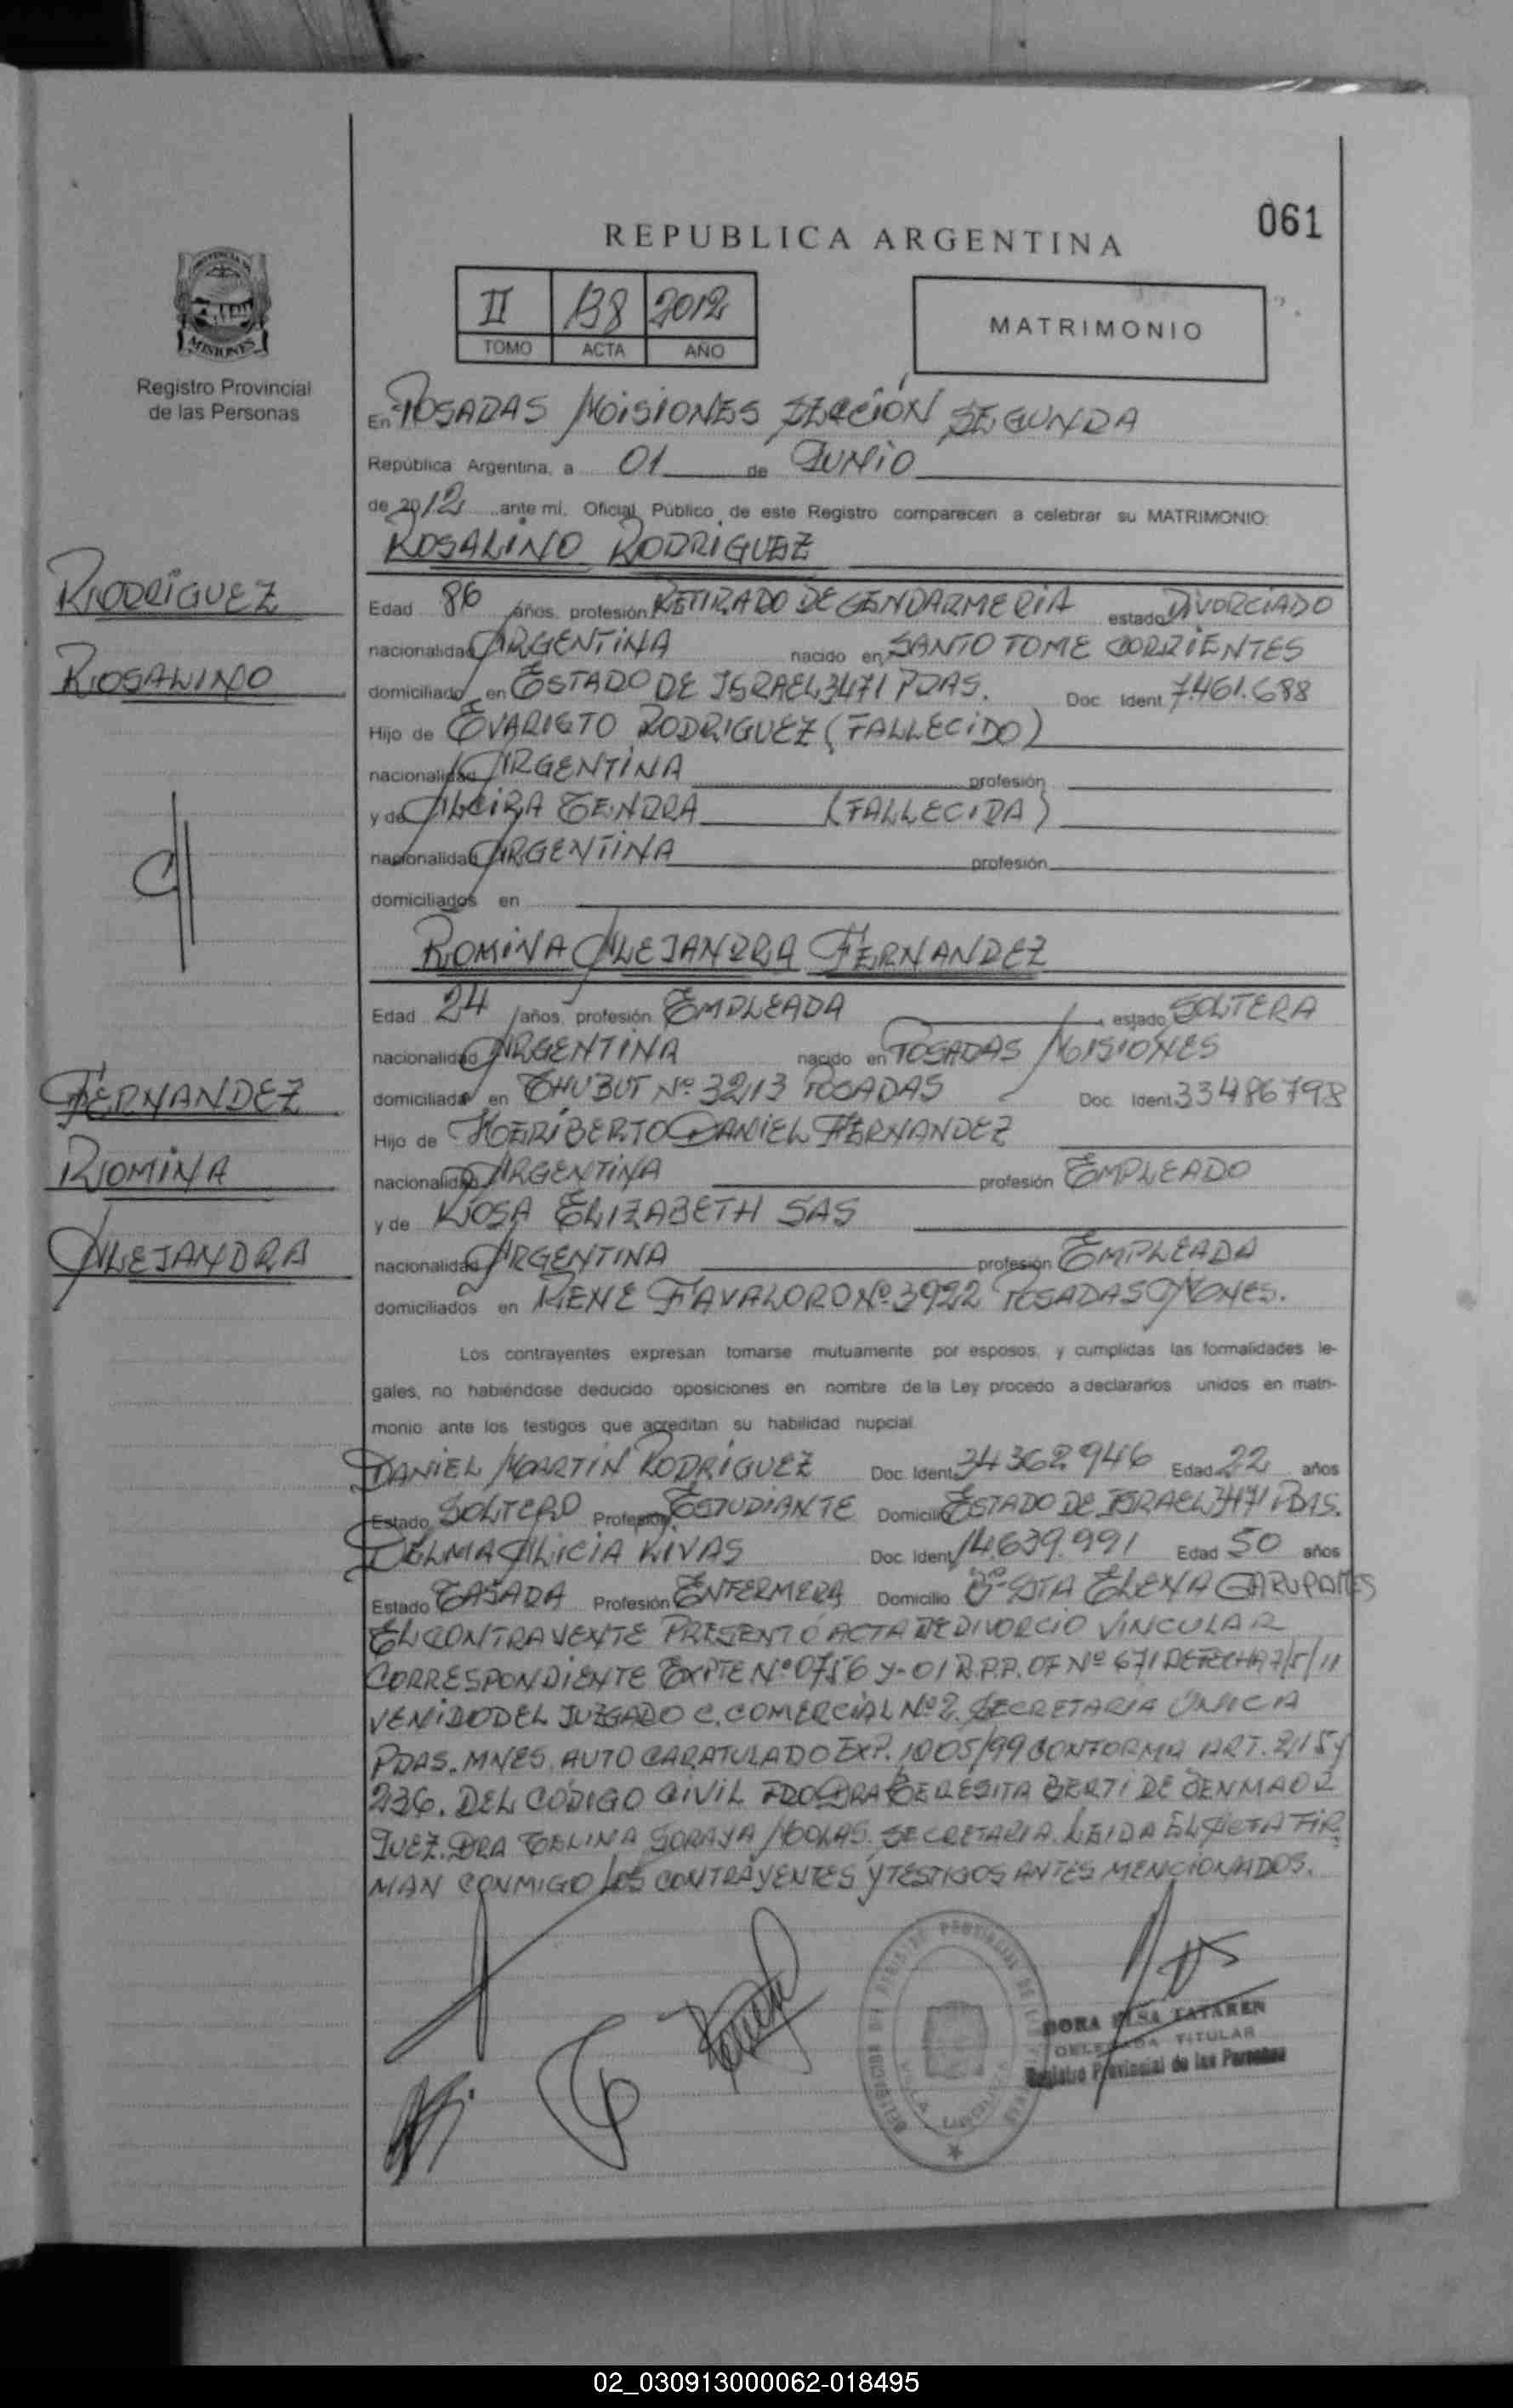 061
REPUBLICA ARGENTINA
PROVINCIA DE
MISIONES
Registro Provincial
de las Personas
II 138 2012
TOMO ACTA AÑO
MATRIMONIO
En POSADAS MISIONES SECCIÓN SEGUNDA
República Argentina, a 01 de JUNIO
de 2012 ante mi, Oficial Público de este Registro comparecen a celebrar su MATRIMONIO:
ROSALINO RODRIGUEZ
RODRÍGUEZ
ROSALINO
Edad 86 años, profesión RETIRADO DE GENDARMERIA estado DIVORCIADO
nacionalidad ARGENTINA nacido en SANTO TOME CORRIENTES
domiciliado en ESTADO DE ISRAEL 3471 PDAS. Doc. Ident. 7.461.688
Hijo de EVARISTO RODRIGUEZ (FALLECIDO)
nacionalidad ARGENTINA profesión
y de ALCIRA (FALLECIDA)
nacionalidad ARGENTINA profesión
domiciliados en
C//
ROMINA ALEJANDRA FERNANDEZ
Edad 24 años, profesión EMPLEADA estado SOLTERA
nacionalidad ARGENTINA nacido en POSADAS MISIONES
FERNANDEZ
ROMINA
ALEJANDRA
domiciliada en CHUBUT Nº 3213 POSADAS Doc. Ident. 33486798
Hijo de HERIBERTO DANIEL FERNANDEZ
nacionalidad ARGENTINA profesión EMPLEADO
y de ROSA ELIZABETH SAS
nacionalidad ARGENTINA profesión EMPLEADA
domiciliados en RENE FAVALORO Nº 3922 POSADAS MNES.
Los contrayentes expresan tomarse mutuamente por esposos, y cumplidas las formalidades le-
gales, no habiéndose deducido oposiciones en nombre de la Ley procedo a declararlos unidos en matri-
monio ante los testigos que acreditan su habilidad nupcial.
DANIEL MARTIN RODRIGUEZ Doc. Ident. 34362946 Edad 22 años
Estado SOLTERO Profesión ESTUDIANTE Domicilio ESTADO DE ISRAEL 3471 PDAS.
DELMA ALICIA RIVAS Doc. Ident. 14.639.991 Edad 50 años
Estado CASADA Profesión ENFERMERA Domicilio Bº STA ELENA GARUPA MNES
EL CONTRAYENTE PRESENTÓ ACTA DE DIVORCIO VINCULAR
CORRESPONDIENTE EXPTE Nº 0756 Y-01 R.P.P. OF Nº 671 DE FECHA 7/5/11
VENIDO DEL JUZGADO C. COMERCIAL Nº 2. SECRETARIA ÚNICA
PDAS. MNES. AUTO CARATULADO EXP. 1005/99 CONFORMA ART. 215 Y
236. DEL CÓDIGO CIVIL FDO DRA TERESITA BERTI DE
JUEZ. DRA CELINA SORAYA SECRETARIA. LEIDA EL ACTA FIR
MAN CONMIGO LOS CONTRAYENTES Y TESTIGOS ANTES MENCIONADOS.
DORA ELSA TATAREN
DELEGADA TITULAR
Registro Provincial de las Personas
02_030913000062-018495